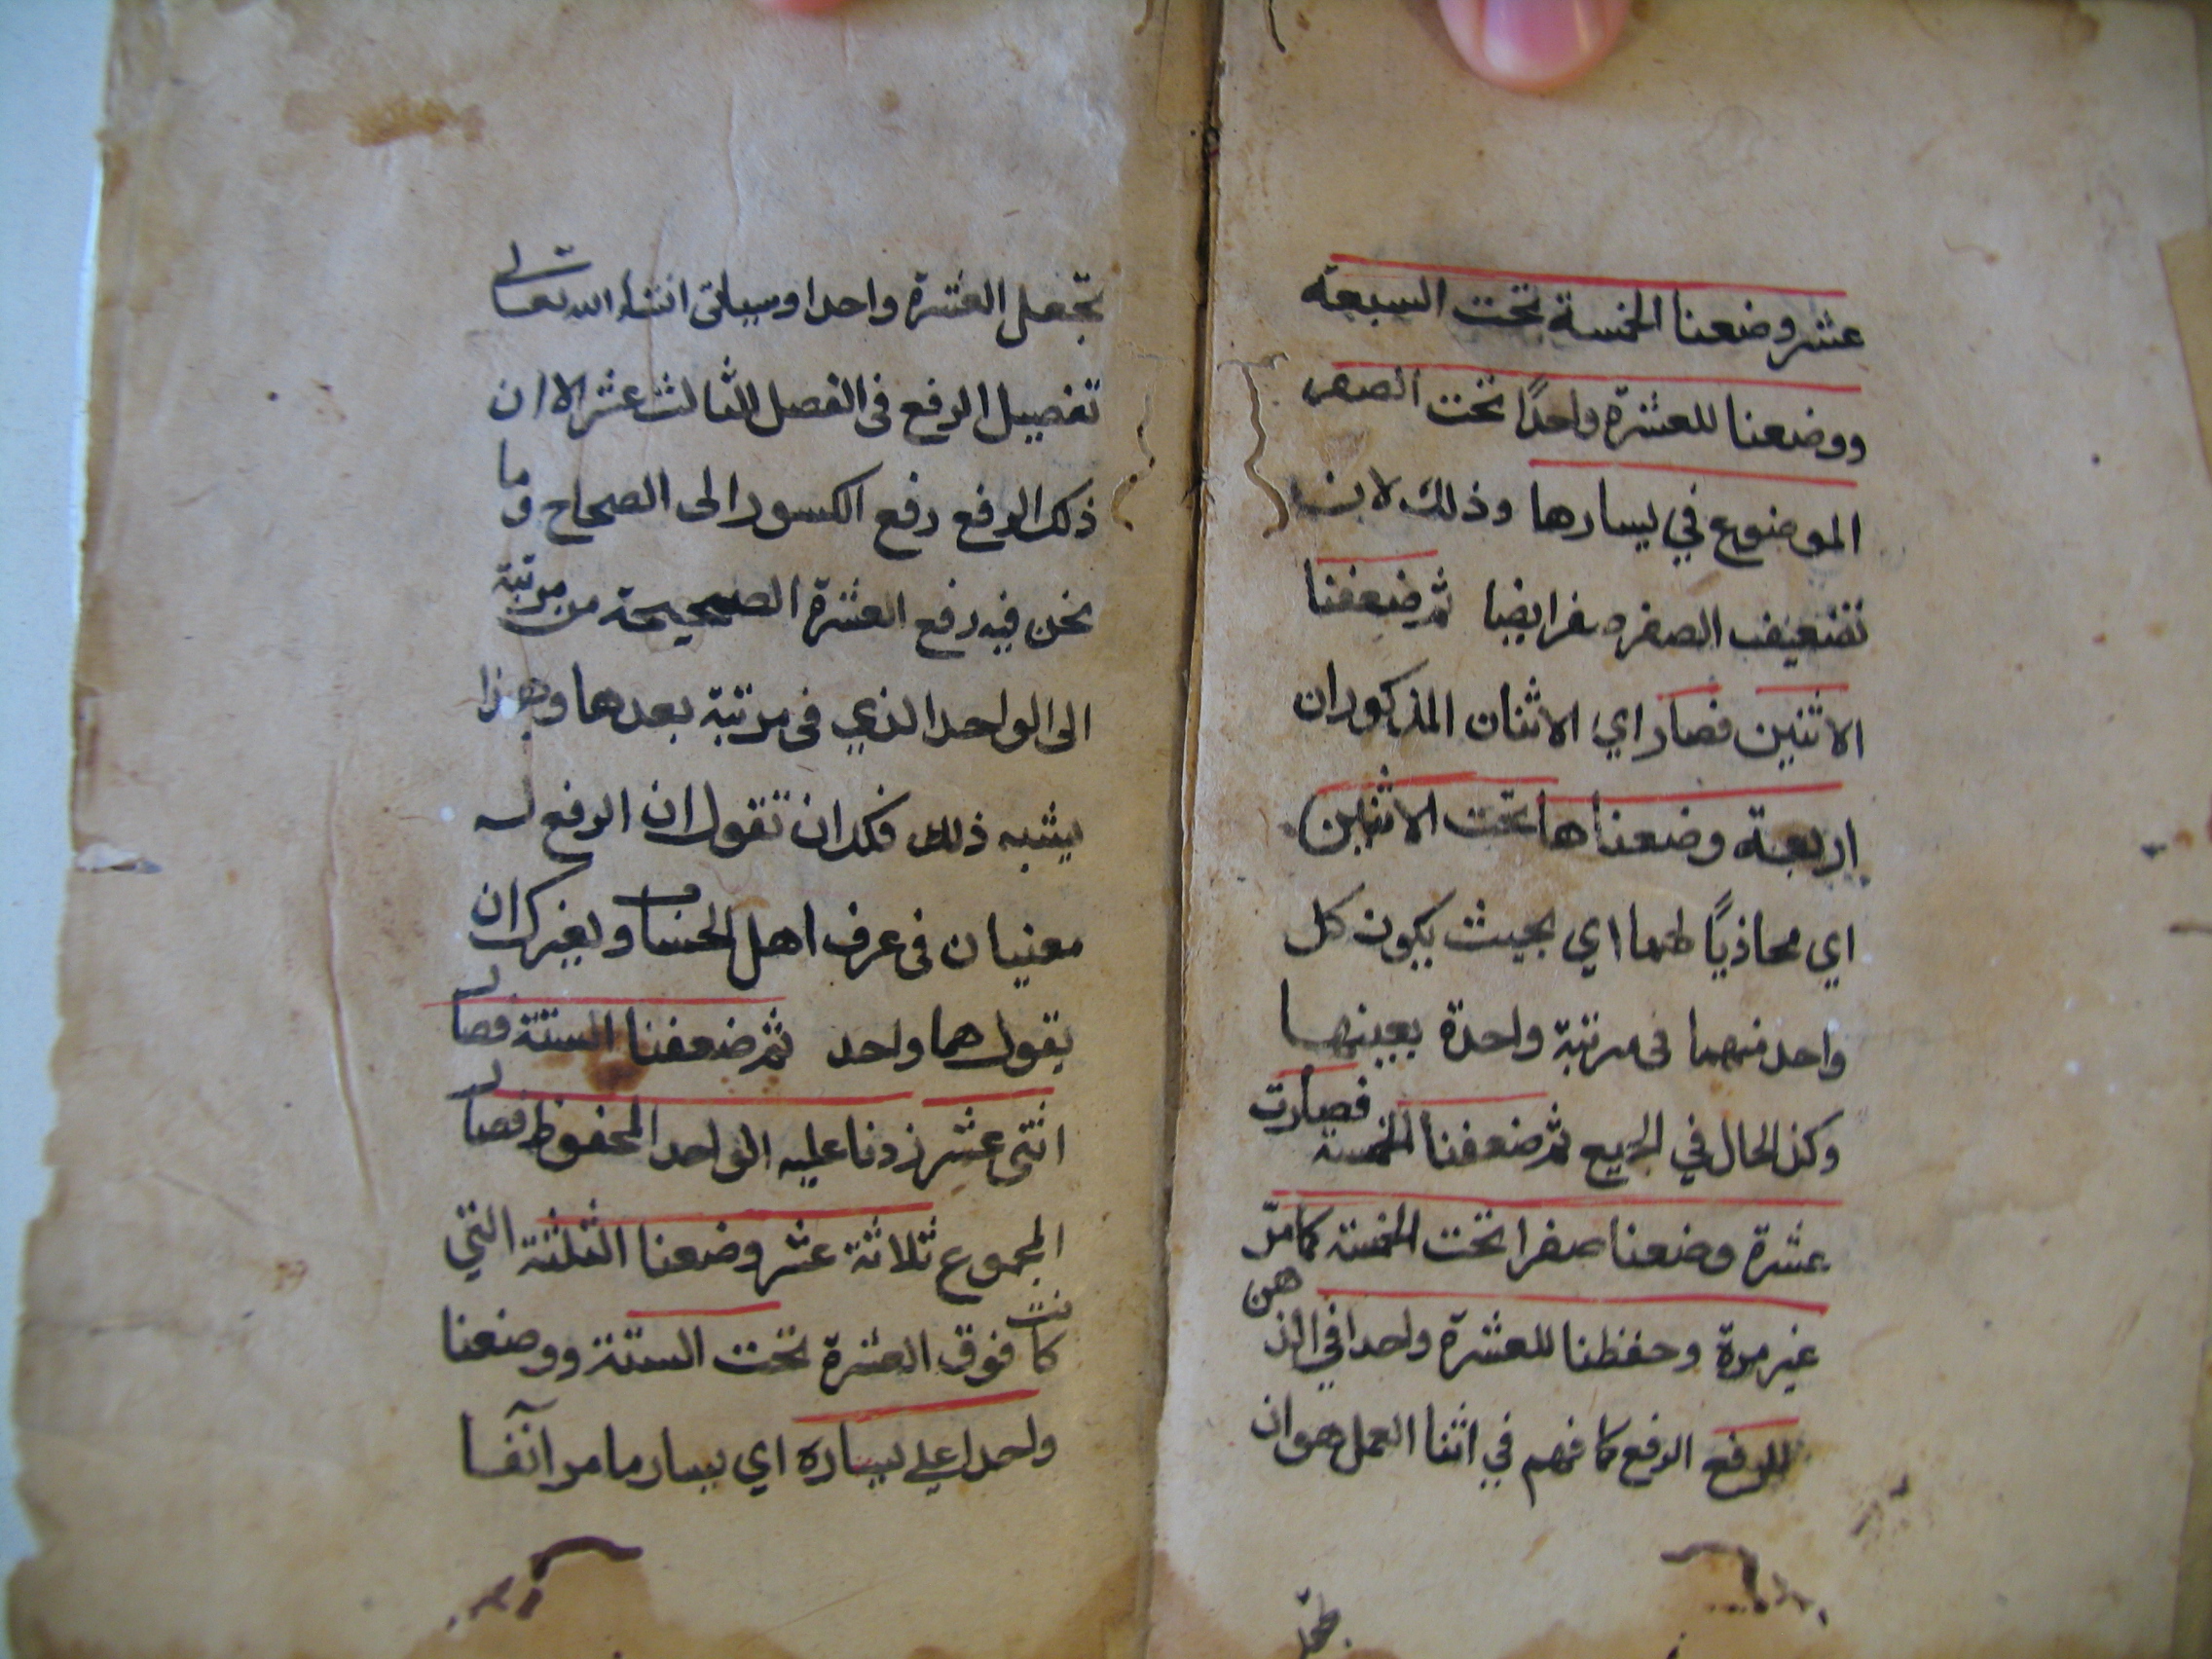 عشر وضعنا الخمسة تحت السبعة
ووضعنا للعشرة واحدًا تحت الصفر
الموضوع في يسارها وذلك لان
تضعيف الصفر صفر ايضا ثم ضعفنا
الاثنين فصار اي الاثنان المذكوران
اربعة وضعناها تحت الاثنين
اي محاذيًا لهما اي بحيث يكون كل
واحد منهما في مرتبة واحدة بعينها
وكذا الحال في الجميع ثم ضعفنا الخمسة فصارت
عشرة وضعنا صفرا تحت الخمسة كما مرّ
غير مرة وحفظنا للعشرة واحدا في الذهن
للرفع الرفع كما فهم في اثنا العمل هو ان
تجعل العشرة واحدا وسياتى انشاء الله تعالى
تفصيل الرفع فى الفصل الثالث عشر الا ان
ذلك الرفع رفع الكسور الى الصحاح وما
نحن فيه رفع العشرة الصحيحة من مرتبة
الى الواحد الذي فى مرتبة بعدها وهذا
يشبه ذلك فلك ان تقول ان الرفع له
معنيان فى عرف اهل الحساب ولغيرك ان
يقول هما واحد ثم ضعفنا الستة فصار
اثنى عشر زدنا عليه الواحد المحفوظ فصار
المجموع ثلاثة عشر وضعنا الثلثة التي
كانت فوق العشرة تحت الستة ووضعنا
واحدا على يساره اي يسار ما مر آنفا